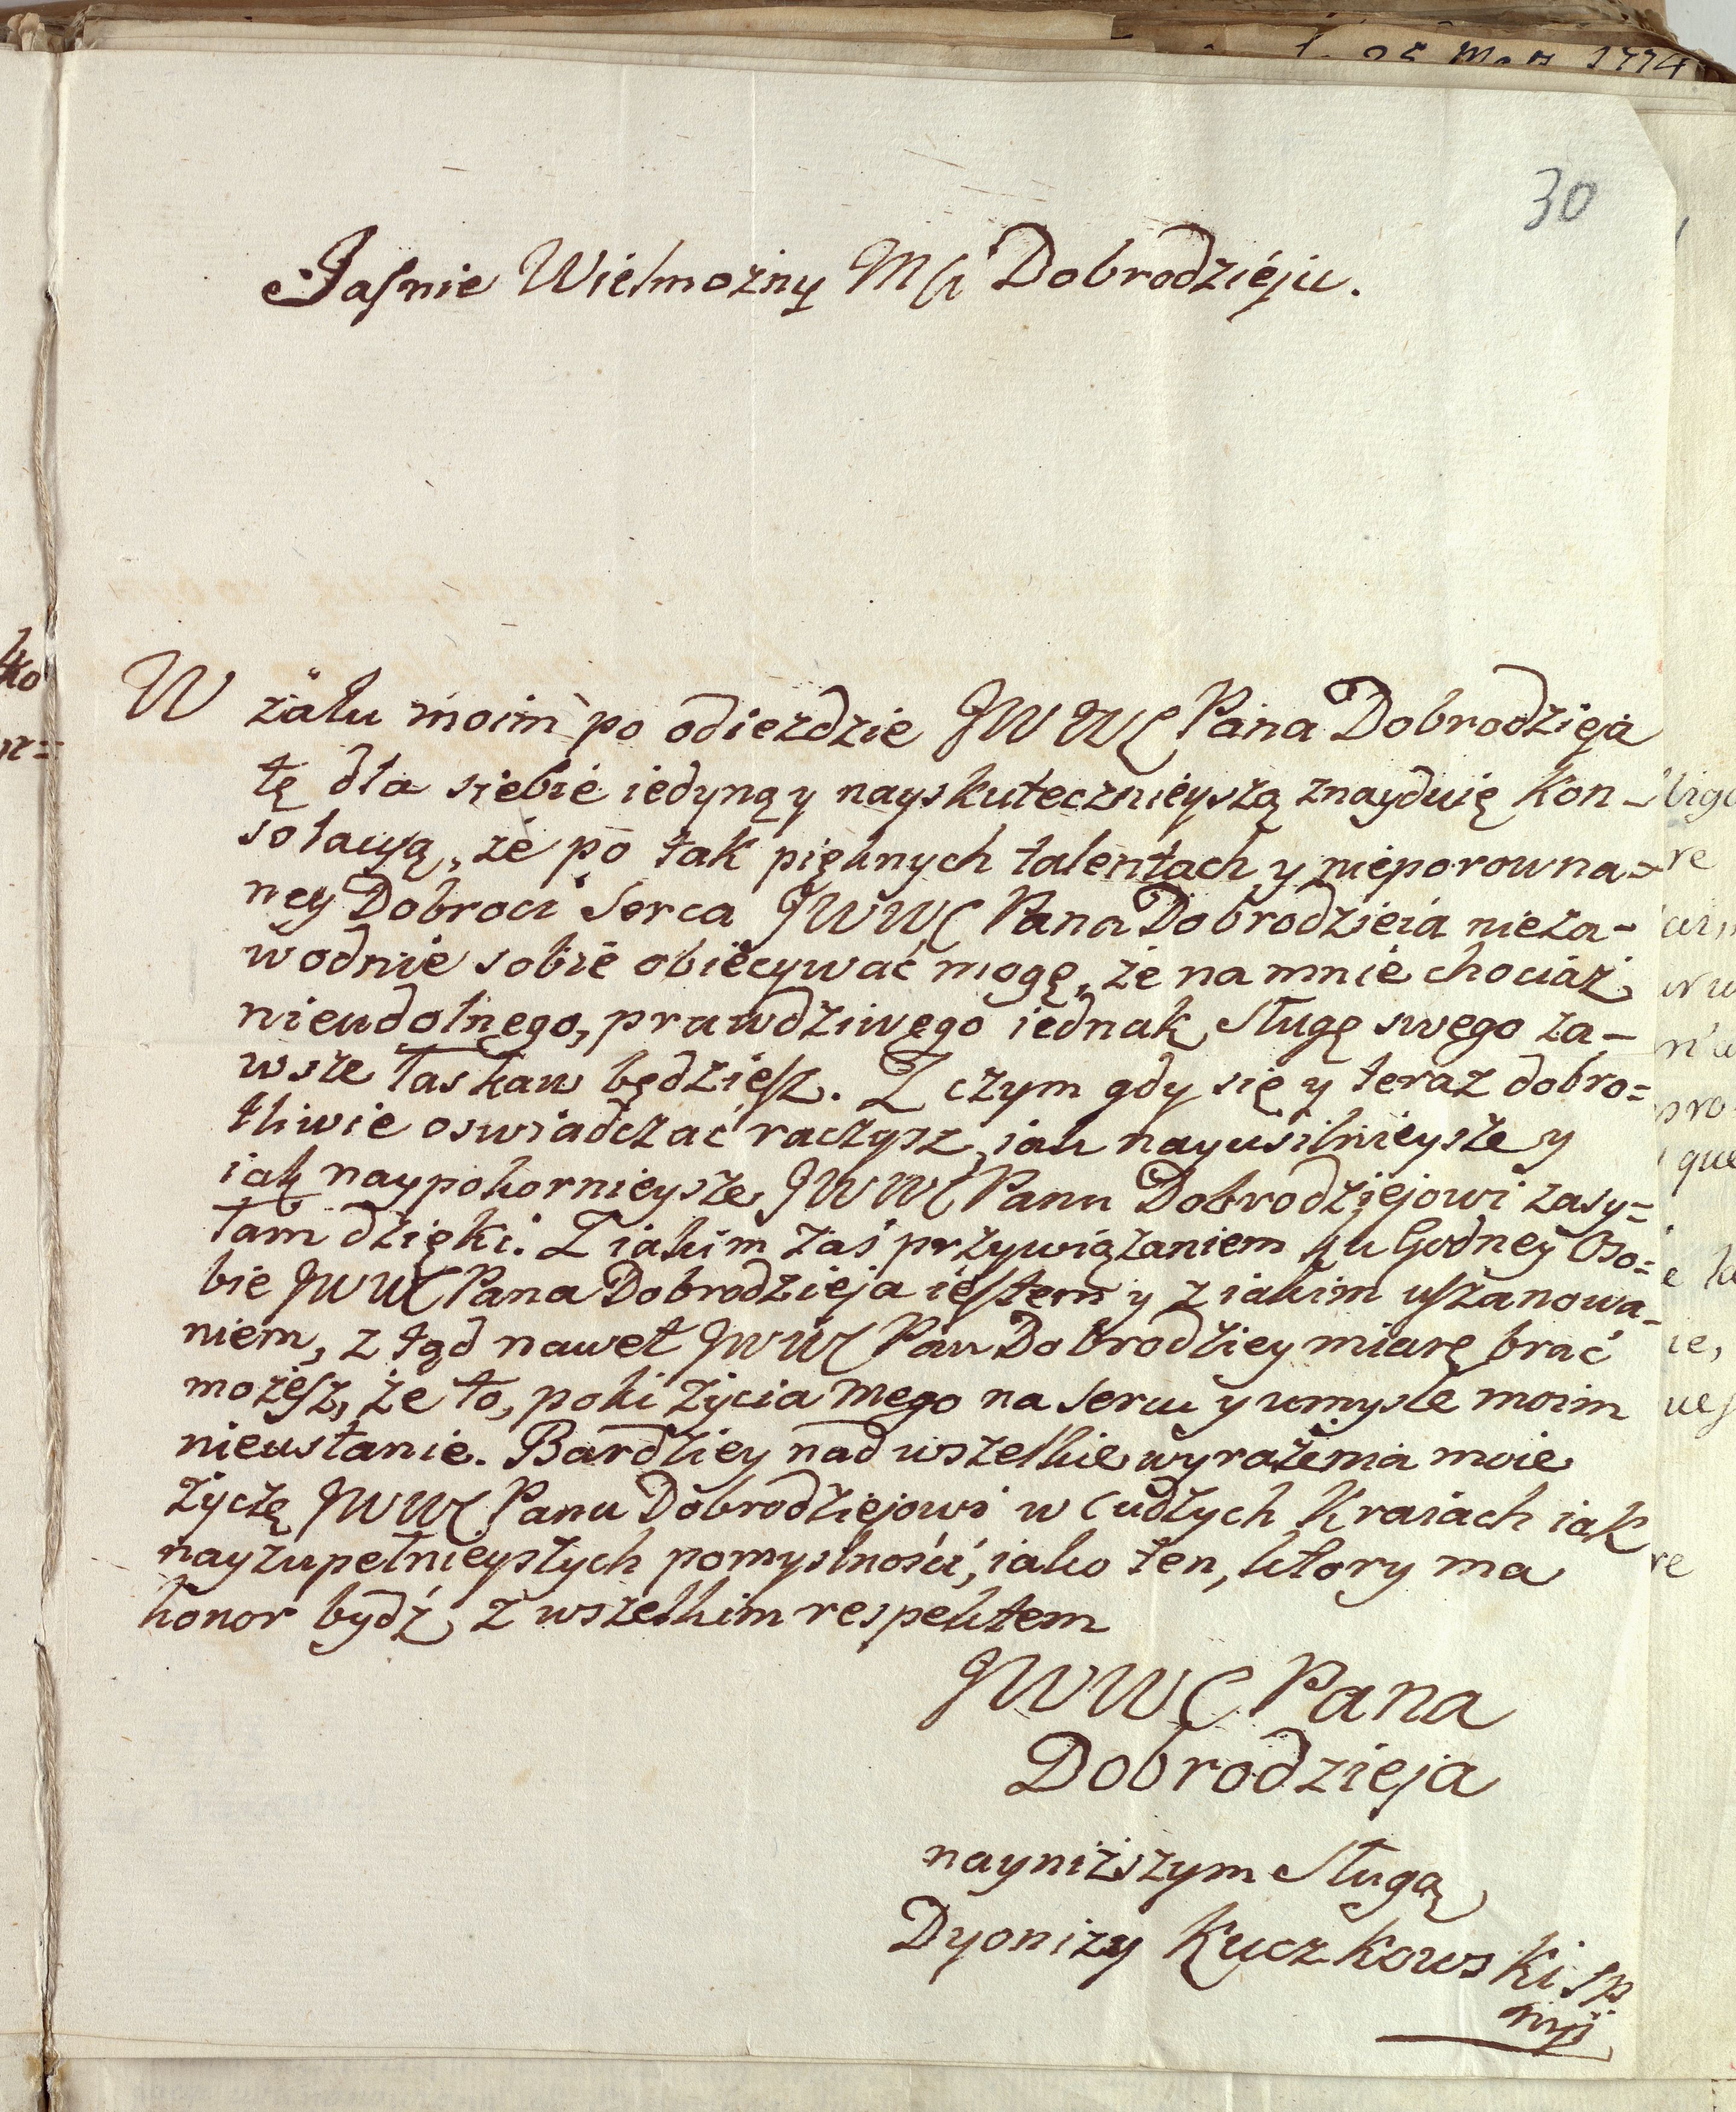 30
Jaſnie Wielmożny Mći Dobrodzieju.
W żalu moim po odiezdzie JWWC Pana Dobrodzieja
tę dla siebie iedyną y nayskutecznieyszą znayduię Kon-
solacyą, że po tak pięknych talentach y nieporowna-
ney Dobroci Serca JWWC Pana Dobrodzieia nieza-
wodnie sobie obiecywać mogę, że na mnie chociaż
nieudolnego, prawdziwego iednak Sługę swego za-
wsze łaskaw będzieſz. Z czym gdy się y teraz dobro=
tliwie oswiadczać raczysz, iak nayusilnieysze y
iak naypokornieysze JWWC Panu Dobrodziejowi zasy=
łam dzięki. Z iakim zaś przywiązaniem ku Godney Oso=
bie JWWC Pana Dobrodzieja ieſtem y z iakim uſzanowa-
niem, z tąd nawet JWWC Pan Dobrodziey miarę brać
możeſz, że to, poki życia mego na sercu y umysle moim
nieustanie. Bardziey nad wszelkie wyrażenia moie
życzę JWWC Panu Dobrodziejowi w Cudzych Kraiach iak
nayzupełnieyszych pomyslności, iako ten, ktory ma
honor bydź z wszelkim respektem
JWWC Pana
Dobrodzieja
nayniższym Sługą
Dyonizy Kuczkowski SP
mp